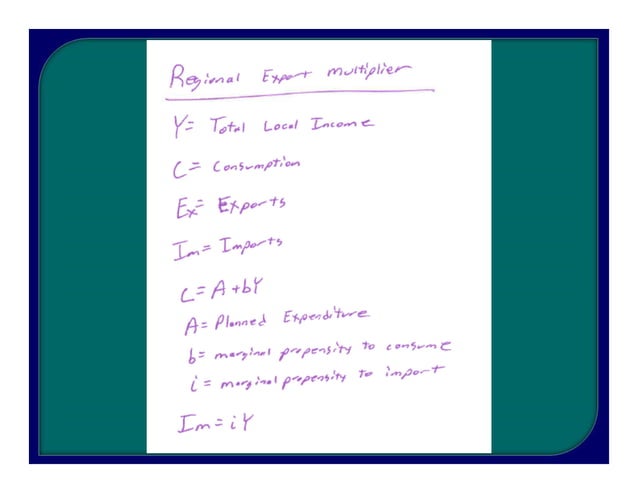 Regional Export Multiplier
Y= Total Local Income
C= Consumption
Ex= Exports
Im= Imports
C=A+bY
A= Planned Expenditure
b= marginal propensity to consume
i= marginal propensity to import
Im=iY